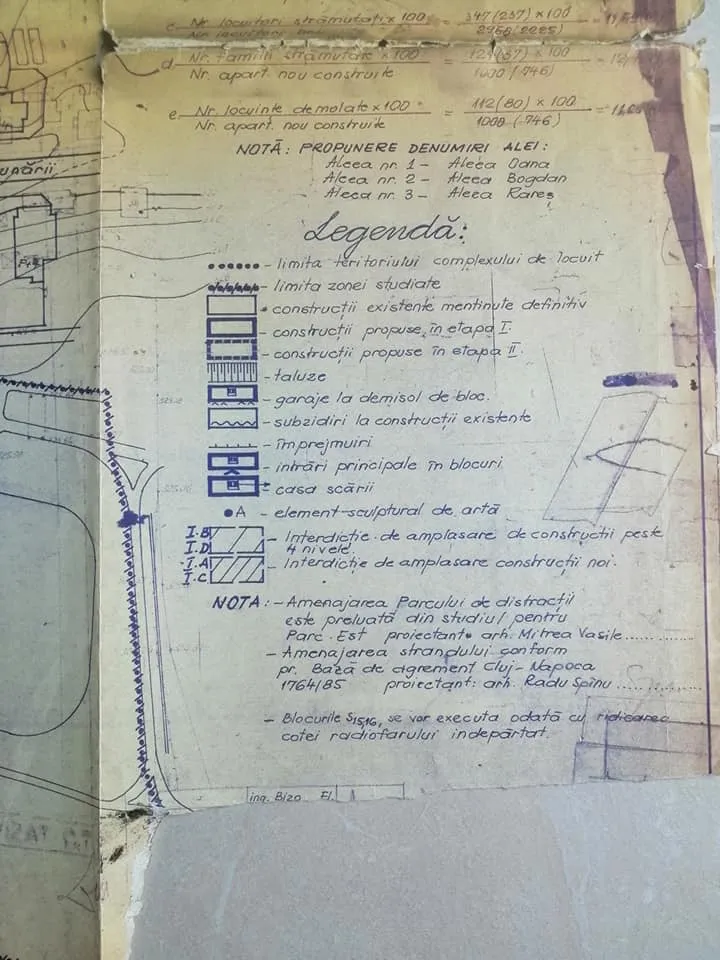 c Nr. locuitori strămutați x 100 = 347(237) x 100
d Nr. familii strămutate x 100 = 124(87) x 100
Nr. apart. nou construite 1000 (746)
e Nr. locuințe demolate x 100 = 112(80) x 100
Nr. apart. nou construite 1000 (746)
NOTĂ: PROPUNERE DENUMIRI ALEI:
Aleea nr. 1 - Aleea Oana
Aleea nr. 2 - Aleea Bogdan
Aleea nr. 3 - Aleea Rareș
Legendă:
- limita teritoriului complexului de locuit
- limita zonei studiate
- construcții existente menținute definitiv
- construcții propuse în etapa I.
- construcții propuse în etapa II.
- taluze
- garaje la demisol de bloc.
- subzidiri la construcții existente
- împrejmuiri
- intrări principale în blocuri
- casa scării
A - element sculptural de artă
I.B
I.D
- Interdicție de amplasare de construcții peste
4 nivele
I.A
I.C
- Interdicție de amplasare construcții noi.
NOTA: - Amenajarea Parcului de distracții
este preluată din studiul pentru
Parc Est proiectant arh. Mitrea Vasile..............
- Amenajarea strandului conform
pr. Bază de agrement Cluj-Napoca
1764/85 proiectant: arh. Radu Spînu ..............
- Blocurile S15,16, se vor executa odată cu ridicarea
cotei radiofarului îndepărtat.
ing. Bizo Fl.